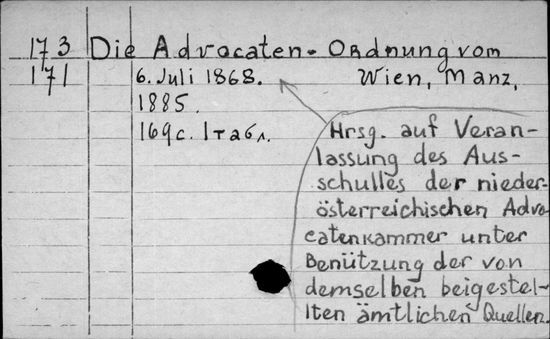 173 Die Advocaten-Ordnung vom
171 6. Juli 1868. Wien, Manz,
1885.
169c. 1 табл.
Hrsg. auf Veran-
lassung des Aus-
schulles der nieder-
österreichischen Advo-
catenkammer unter
Benützung der von
demselben beigestel-
lten ämtlichen Quellen.